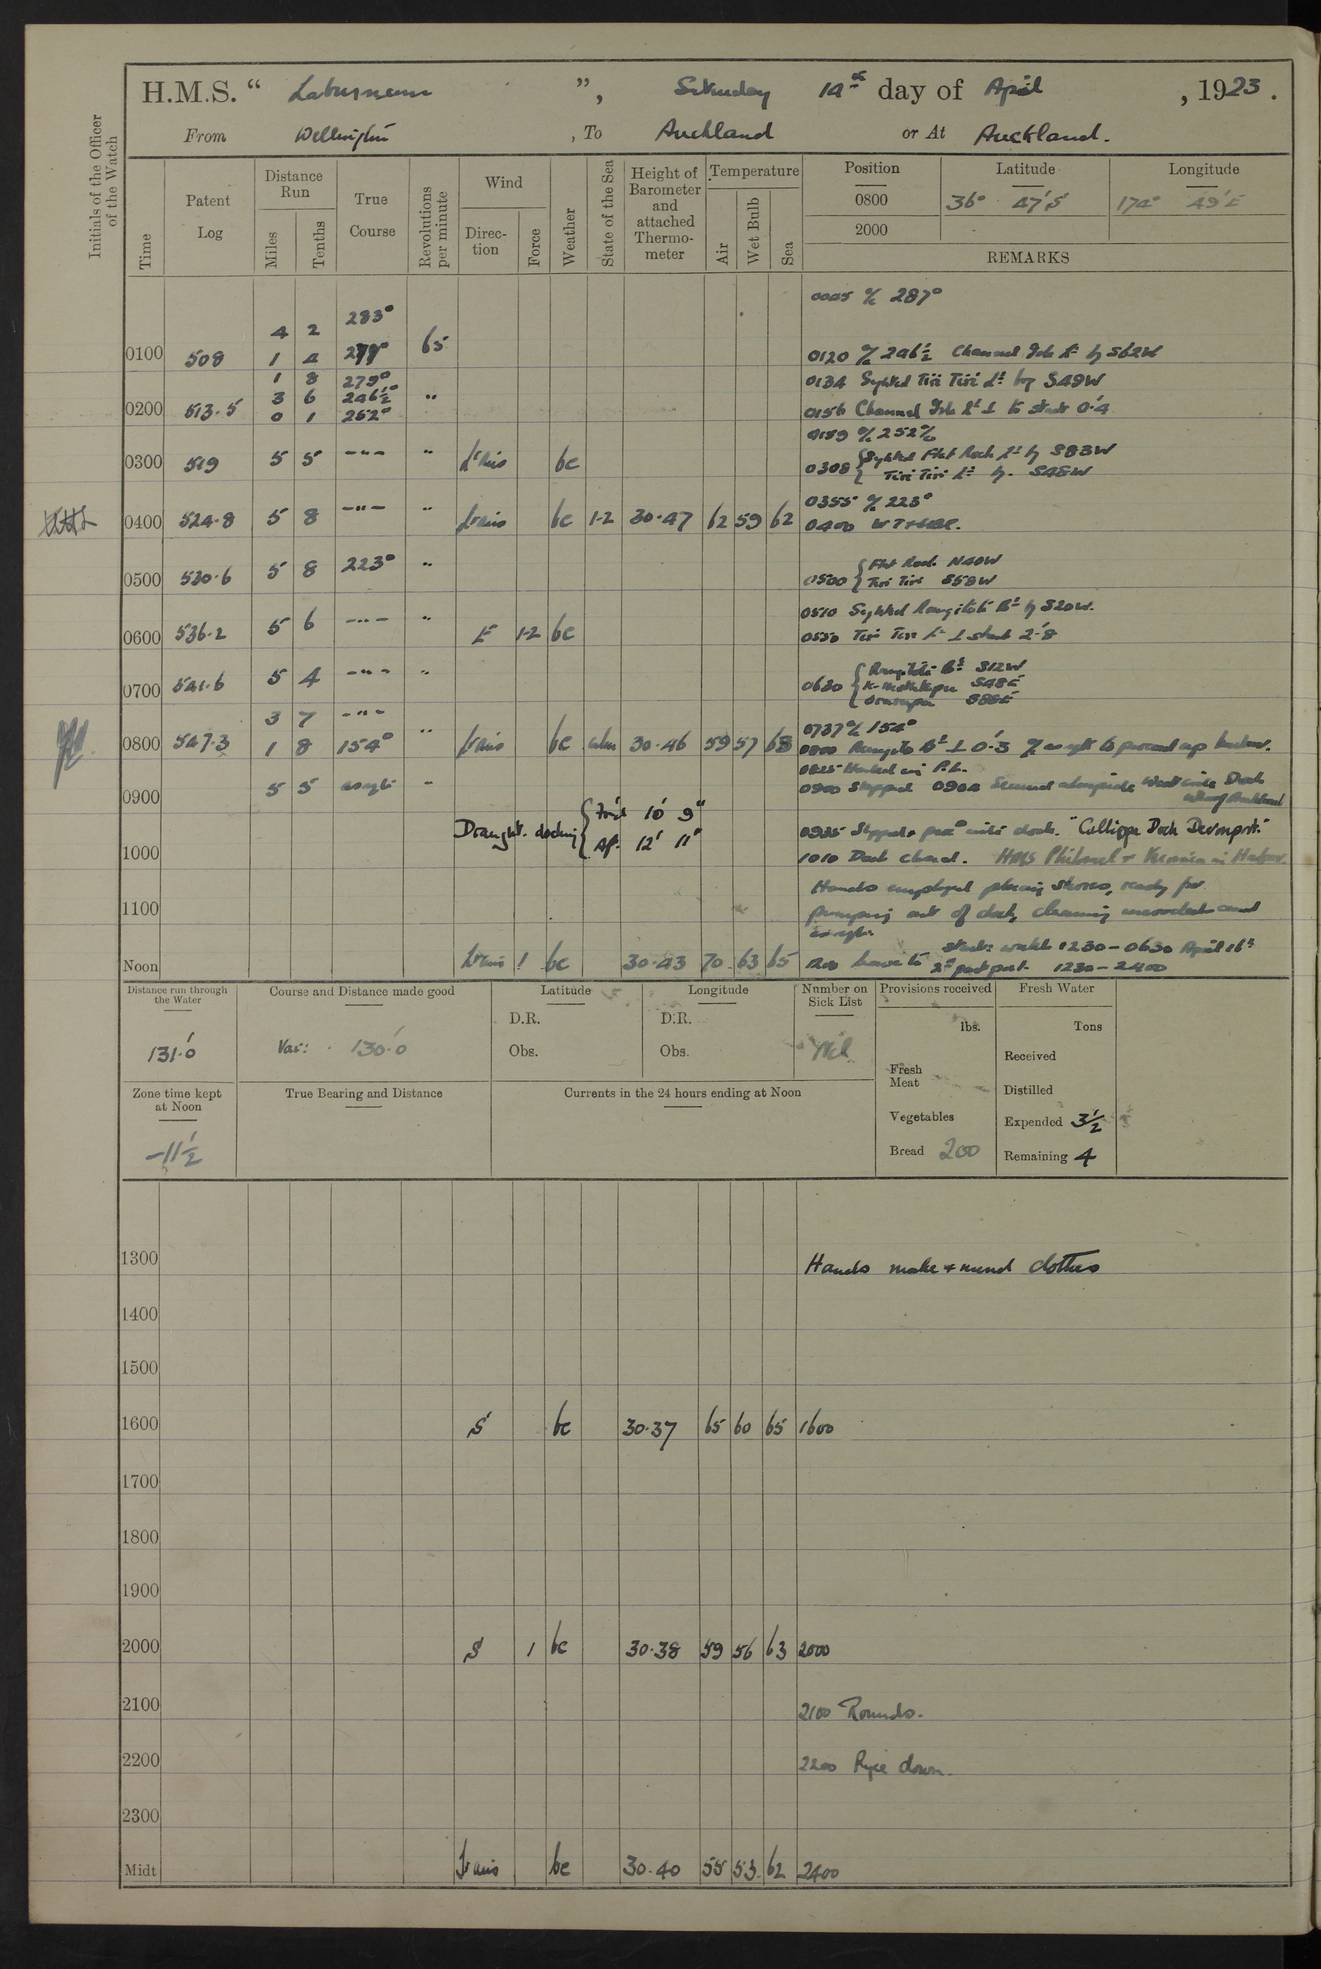 H.M.S. “ Laburnum ”, Saturday 14th day of April , 1923.
From Wellington , To Auckland or At Auckland.
Initials of the Officer of the Watch
Time
Patent Log
Distance Run
Miles
Tenths
True Course
Revolutions per minute
Wind
Direction
Force
Weather
State of the Sea
Height of Barometer and attached Thermometer
Temperature
Air
Wet Bulb
Sea
Position Latitude Longitude
0800 36° 47' S 174° 49' E
2000
REMARKS
0045 a/c 287°
4 2 283°
0100 508 1 4 65 0120 a/c 246½ Channel Isle Lt by S62W
1 8 279° 0134 Sighted Tiri Tiri Lt by S49W
3 6 246½°
0200 513.5 0 1 262° " 0156 Channel Isle Lt ⊥ to stbd 0'.4
0159 a/c 252°
0300 519 5 5 -"- " Airs bc 0308 { Sighted Flat Rock Lt by S83W
Tiri Tiri Lt by S48W
0355 a/c 223°
0400 524.8 5 8 -"- " Airs bc 1-2 30.47 62 59 62 0400
0500 530.6 5 8 223° " 0500 { Flat Rock N40W
Tiri Tiri S58W
0510 Sighted Rangitoto Bn by S20W.
0600 536.2 5 6 -"- " E 1-2 bc Tiri Tiri Lt ⊥ stbd 2'.8
0700 541.6 5 4 -"- " 0630 { Rangitoto Bn S12W
S48E
S88E
3 7 -"- 0737 a/c 154°
0800 547.3 1 8 154° " Airs bc calm 30.46 59 57 63 0800 Rangito Bn ⊥ 0'.3 a/c as reqte to proceed up harbour.
0825 Hauled in P.L.
0900 5 5 as reqte " 0900 Stopped 0904 Secured alongside West side Dock
Wharf Auckland
Draught. docking { For'd 10' 9"
Aft. 12' 11"
0935 Slipped & proceed into dock. "Calliope Dock Devonport."
1000 1010 Dock closed. HMS Philomel & Veronica in Harbour.
Hands employed placing shores, ready for
1100 pumping out of dock, cleaning messdeck and
as reqte.
Noon Airs 1 bc 30.43 70 63 65 1200 Leave to Starb: watch 1230 – 0630 April 16th
2nd part port. 1230 – 2400
Distance run through the Water
131'.0
Course and Distance made good
Var: 130'.0
Latitude
D.R.
Obs.
Longitude
D.R.
Obs.
Number on Sick List
Nil
Provisions received
lbs.
Fresh Meat
Vegetables
Bread 200
Fresh Water
Tons
Received
Distilled
Expended 3½
Remaining 4
Zone time kept at Noon
-11½
True Bearing and Distance
Currents in the 24 hours ending at Noon
1300 Hands make & mend clothes
1400
1500
1600 S bc 30.37 65 60 65 1600
1700
1800
1900
2000 S 1 bc 30.38 59 56 63 2000
2100 2100 Rounds.
2200 2200 Pipe down.
2300
Midt Airs bc 30.40 55 53 62 2400